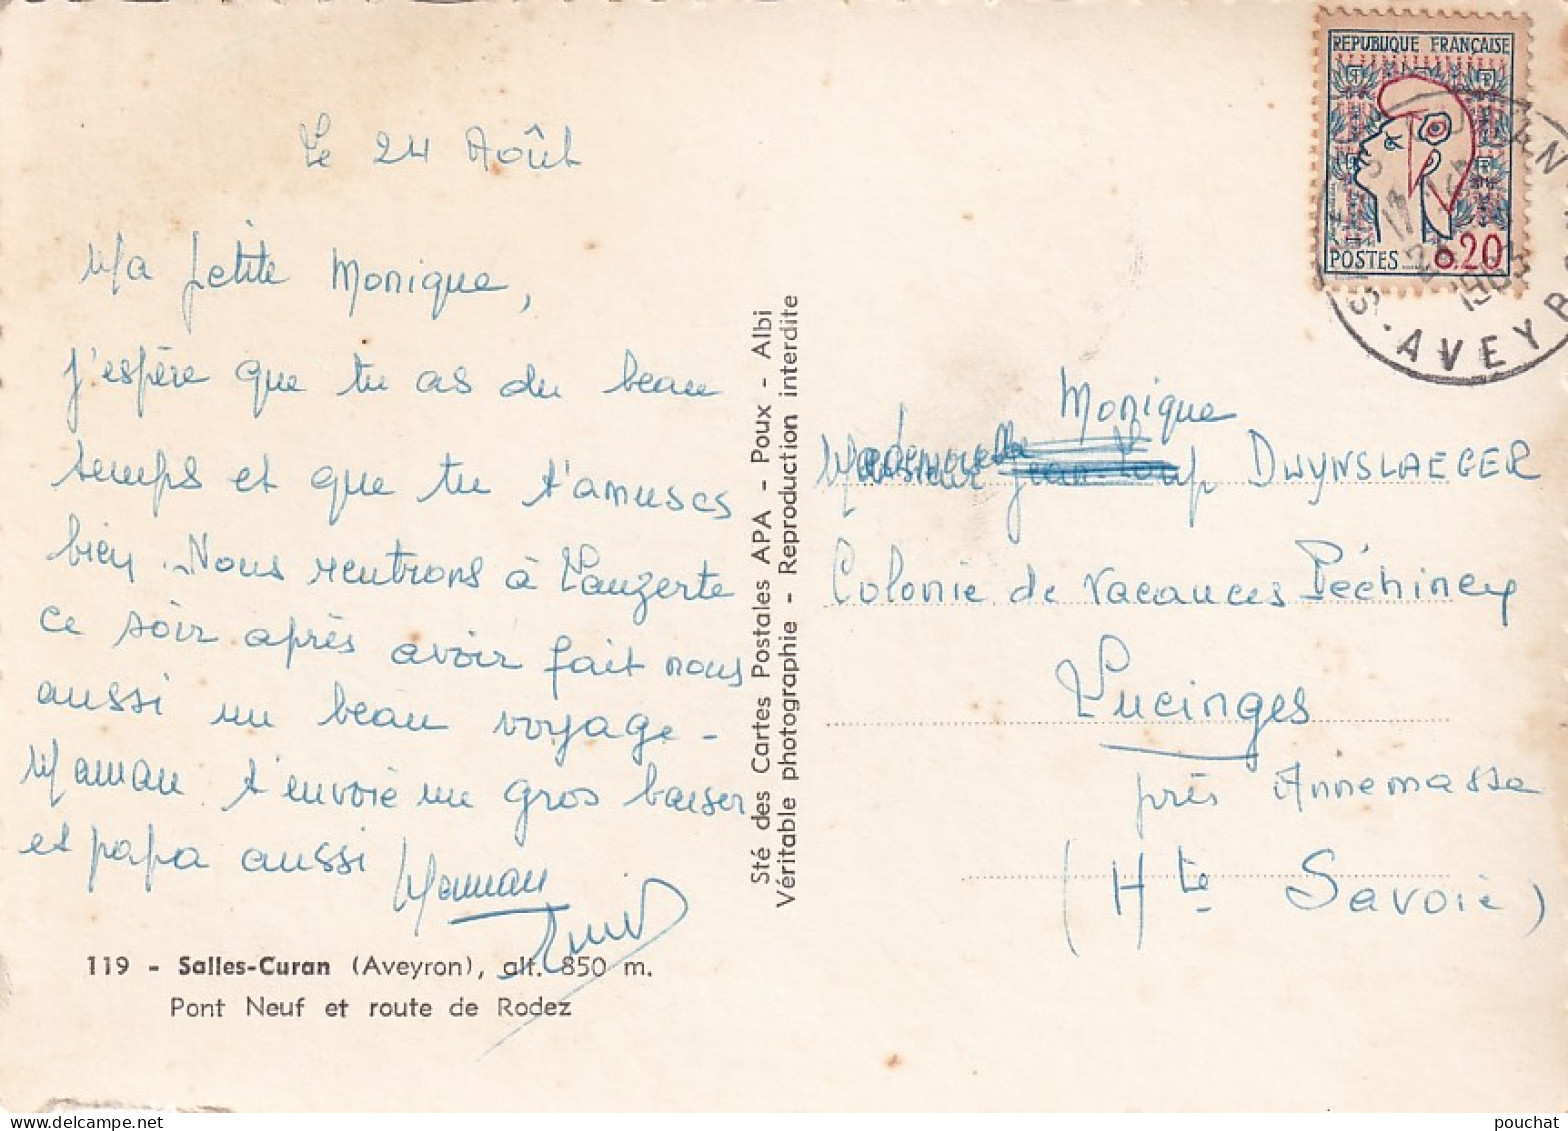 Le 24 Août
Ma petite Monique,
j'espère que tu as du beau
temps et que tu t'amuses
bien. Nous rentrons à Lauzerte
ce soir après avoir fait nous
aussi un beau voyage -
Maman t'envoie un gros baiser
et papa aussi Maman
119 - Salles-Curan (Aveyron), alt. 850 m.
Pont Neuf et route de Rodez
Sté des Cartes Postales APA - Poux - Albi
Véritable photographie - Reproduction interdite
REPUBLIQUE FRANÇAISE
POSTES 0.20
1963
AVEYR
Monique
Mademoiselle Jean-Loup DWYNSLAEGER
Colonie de Vacances Péchiney
Lucinges
près Annemasse
(Hte Savoie)
pouchat